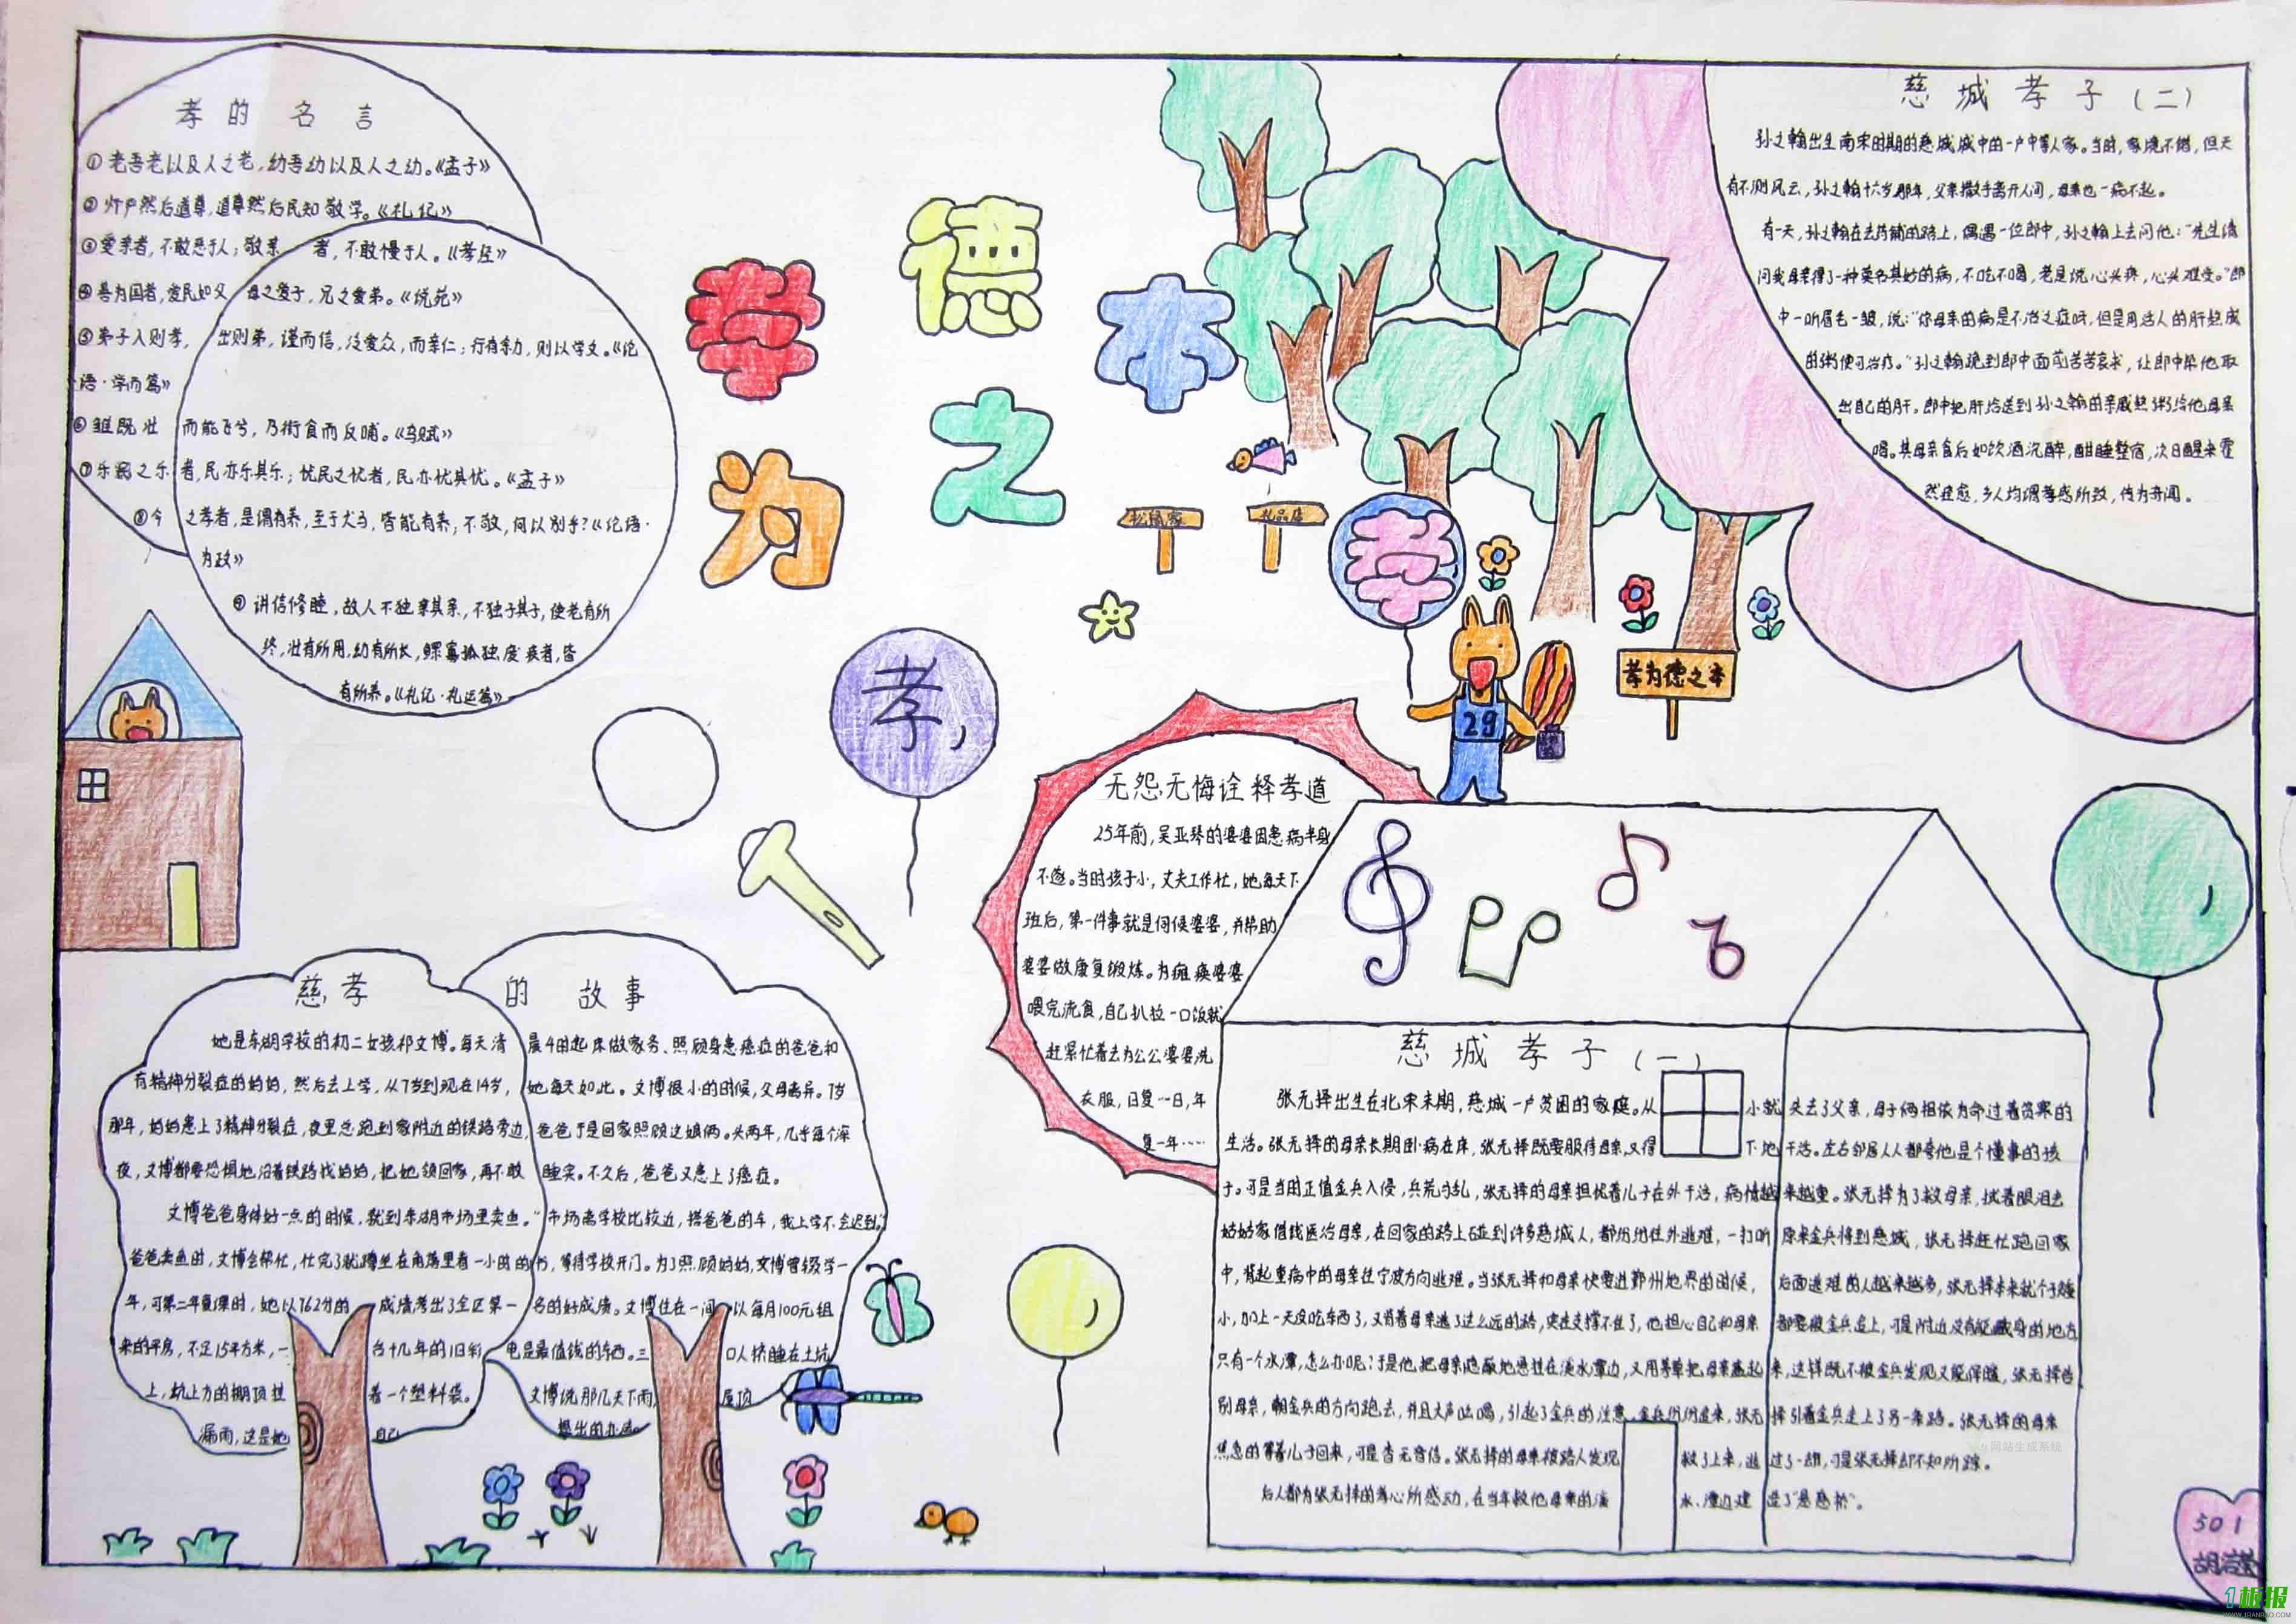 孝的名言
①老吾老以及人之老,幼吾幼以及人之幼。《孟子》
②然后道尊,道尊然后民知敬学。《礼记》
③爱亲者,不敢恶于人;敬亲者,不敢慢于人。《孝经》
④善为国者,爱民如父母之爱子,兄之爱弟。《说苑》
⑤弟子入则孝,出则弟,谨而信,泛爱众,而亲仁;行有余力,则以学文。《论
语·学而篇》
⑥雏既壮而能飞兮,乃衔食而反哺。《乌赋》
⑦乐民之乐者,民亦乐其乐;忧民之忧者,民亦忧其忧。《孟子》
⑧今之孝者,是谓有养,至于犬马,皆能有养;不敬,何以别乎?《论语·
为政》
⑨讲信修睦,故人不独亲其亲,不独子其子,使老有所
终,壮有所用,幼有所长,鳏寡孤独废疾者,皆
有所养。《礼记·礼运篇》
孝为德之本
松鼠家
礼品店
孝
孝为德之本
29
孝
慈城孝子(二)
孙之翰出生南宋时期的慈城城中的一户中等人家。当时,家境不错,但天
有不测风云,孙之翰十六岁那年,父亲撒手离开人间,母亲也一病不起。
有一天,孙之翰在去药铺的路上,偶遇一位郎中,孙之翰上去问他:“先生请
问我母亲得了一种莫名其妙的病,不吃不喝,老是说心头疼,心头难受。”郎
中一听眉毛一皱,说:“你母亲的病是不治之症呀,但是用活人的肝熬成
的粥便可治疗。”孙之翰跪到郎中面前苦苦哀求,让郎中帮他取
出自己的肝。郎中把肝给送到孙之翰的亲戚熬粥给他母亲
喝。其母亲食后如饮酒沉醉,酣睡整宿,次日醒来霍
然痊愈,乡人均谓孝感所致,传为奇闻。
无怨无悔诠释孝道
25年前,吴亚琴的婆婆因患病半身
不遂。当时孩子小,丈夫工作忙,她每天下
班后,第一件事就是伺候婆婆,并帮助
婆婆做康复锻炼。为瘫痪婆婆
喂完流食,自己扒拉一口饭就
赶紧忙着去为公公婆婆洗
衣服,日复一日,年
复一年……
慈孝的故事
她是东湖学校的初二女孩祁文博。每天清晨4时起床做家务、照顾身患癌症的爸爸和
有精神分裂症的妈妈,然后去上学,从7岁到现在14岁,她每天如此。文博很小的时候,父母离异。7岁
那年,妈妈患上了精神分裂症,夜里总跑到家附近的铁路旁边,爸爸于是回家照顾这娘俩。头两年,几乎每个深
夜,文博都要恐惧地沿着铁路找妈妈,把她领回家,再不敢睡实。不久后,爸爸又患上了癌症。
文博爸爸身体好一点的时候,就到东湖市场里卖鱼。“市场离学校比较近,搭爸爸的车,我上学不会迟到。”
爸爸卖鱼时,文博会帮忙,忙完了就蹲坐在角落里看一小时的书,等待学校开门。为了照顾妈妈,文博曾级学一
年,可第二年复课时,她以762分的成绩考出了全区第一名的好成绩。文博住在一间以每月100元租
来的平房,不足15平方米,一台十几年的旧彩电是最值钱的东西。三口人挤睡在土炕
上,炕上方的棚顶挂着一个塑料袋。文博说那几天下雨,屋顶
漏雨,这是她自己想出的办法。
慈城孝子(一)
张无择出生在北宋末期,慈城一户贫困的家庭。从小就失去了父亲,母子俩相依为命过着贫寒的
生活。张无择的母亲长期卧病在床,张无择既要服侍母亲,又得下地干活。左右邻居人人都夸他是个懂事的孩
子。可是当时正值金兵入侵,兵荒马乱,张无择的母亲担忧着儿子在外干活,病情越来越重。张无择为了救母亲,拭着眼泪去
姑姑家借钱医治母亲,在回家的路上碰到许多慈城人,都纷纷往外逃难,一打听原来金兵将到慈城,张无择赶忙跑回家
中,背起重病中的母亲往宁波方向逃难。当张无择和母亲快要进鄞州地界的时候,后面逃难的人越来越多,张无择本来就个子矮
小,加上一天没吃东西了,又背着母亲逃了这么远的路,实在支撑不住了,他担心自己和母亲都要被金兵追上,可是附近没有能藏身的地方
只有一个水潭,怎么办呢?于是他把母亲隐蔽地悬挂在淡水潭边,又用茅草把母亲盖起来,这样既不被金兵发现又能保暖,张无择告
别母亲,朝金兵的方向跑去,并且大声吆喝,引起了金兵的注意,金兵纷纷追来,张无择引着金兵走上了另一条路。张无择的母亲
焦急的等着儿子回来,可是杳无音信。张无择的母亲被路人发现救了上来,逃过了一劫,可是张无择却不知所踪。
后人都为张无择的孝心所感动,在当年救他母亲的淡水潭边建造了“悬慈桥”。
网站生成系统
501
1板报
WWW.1BANBAO.COM